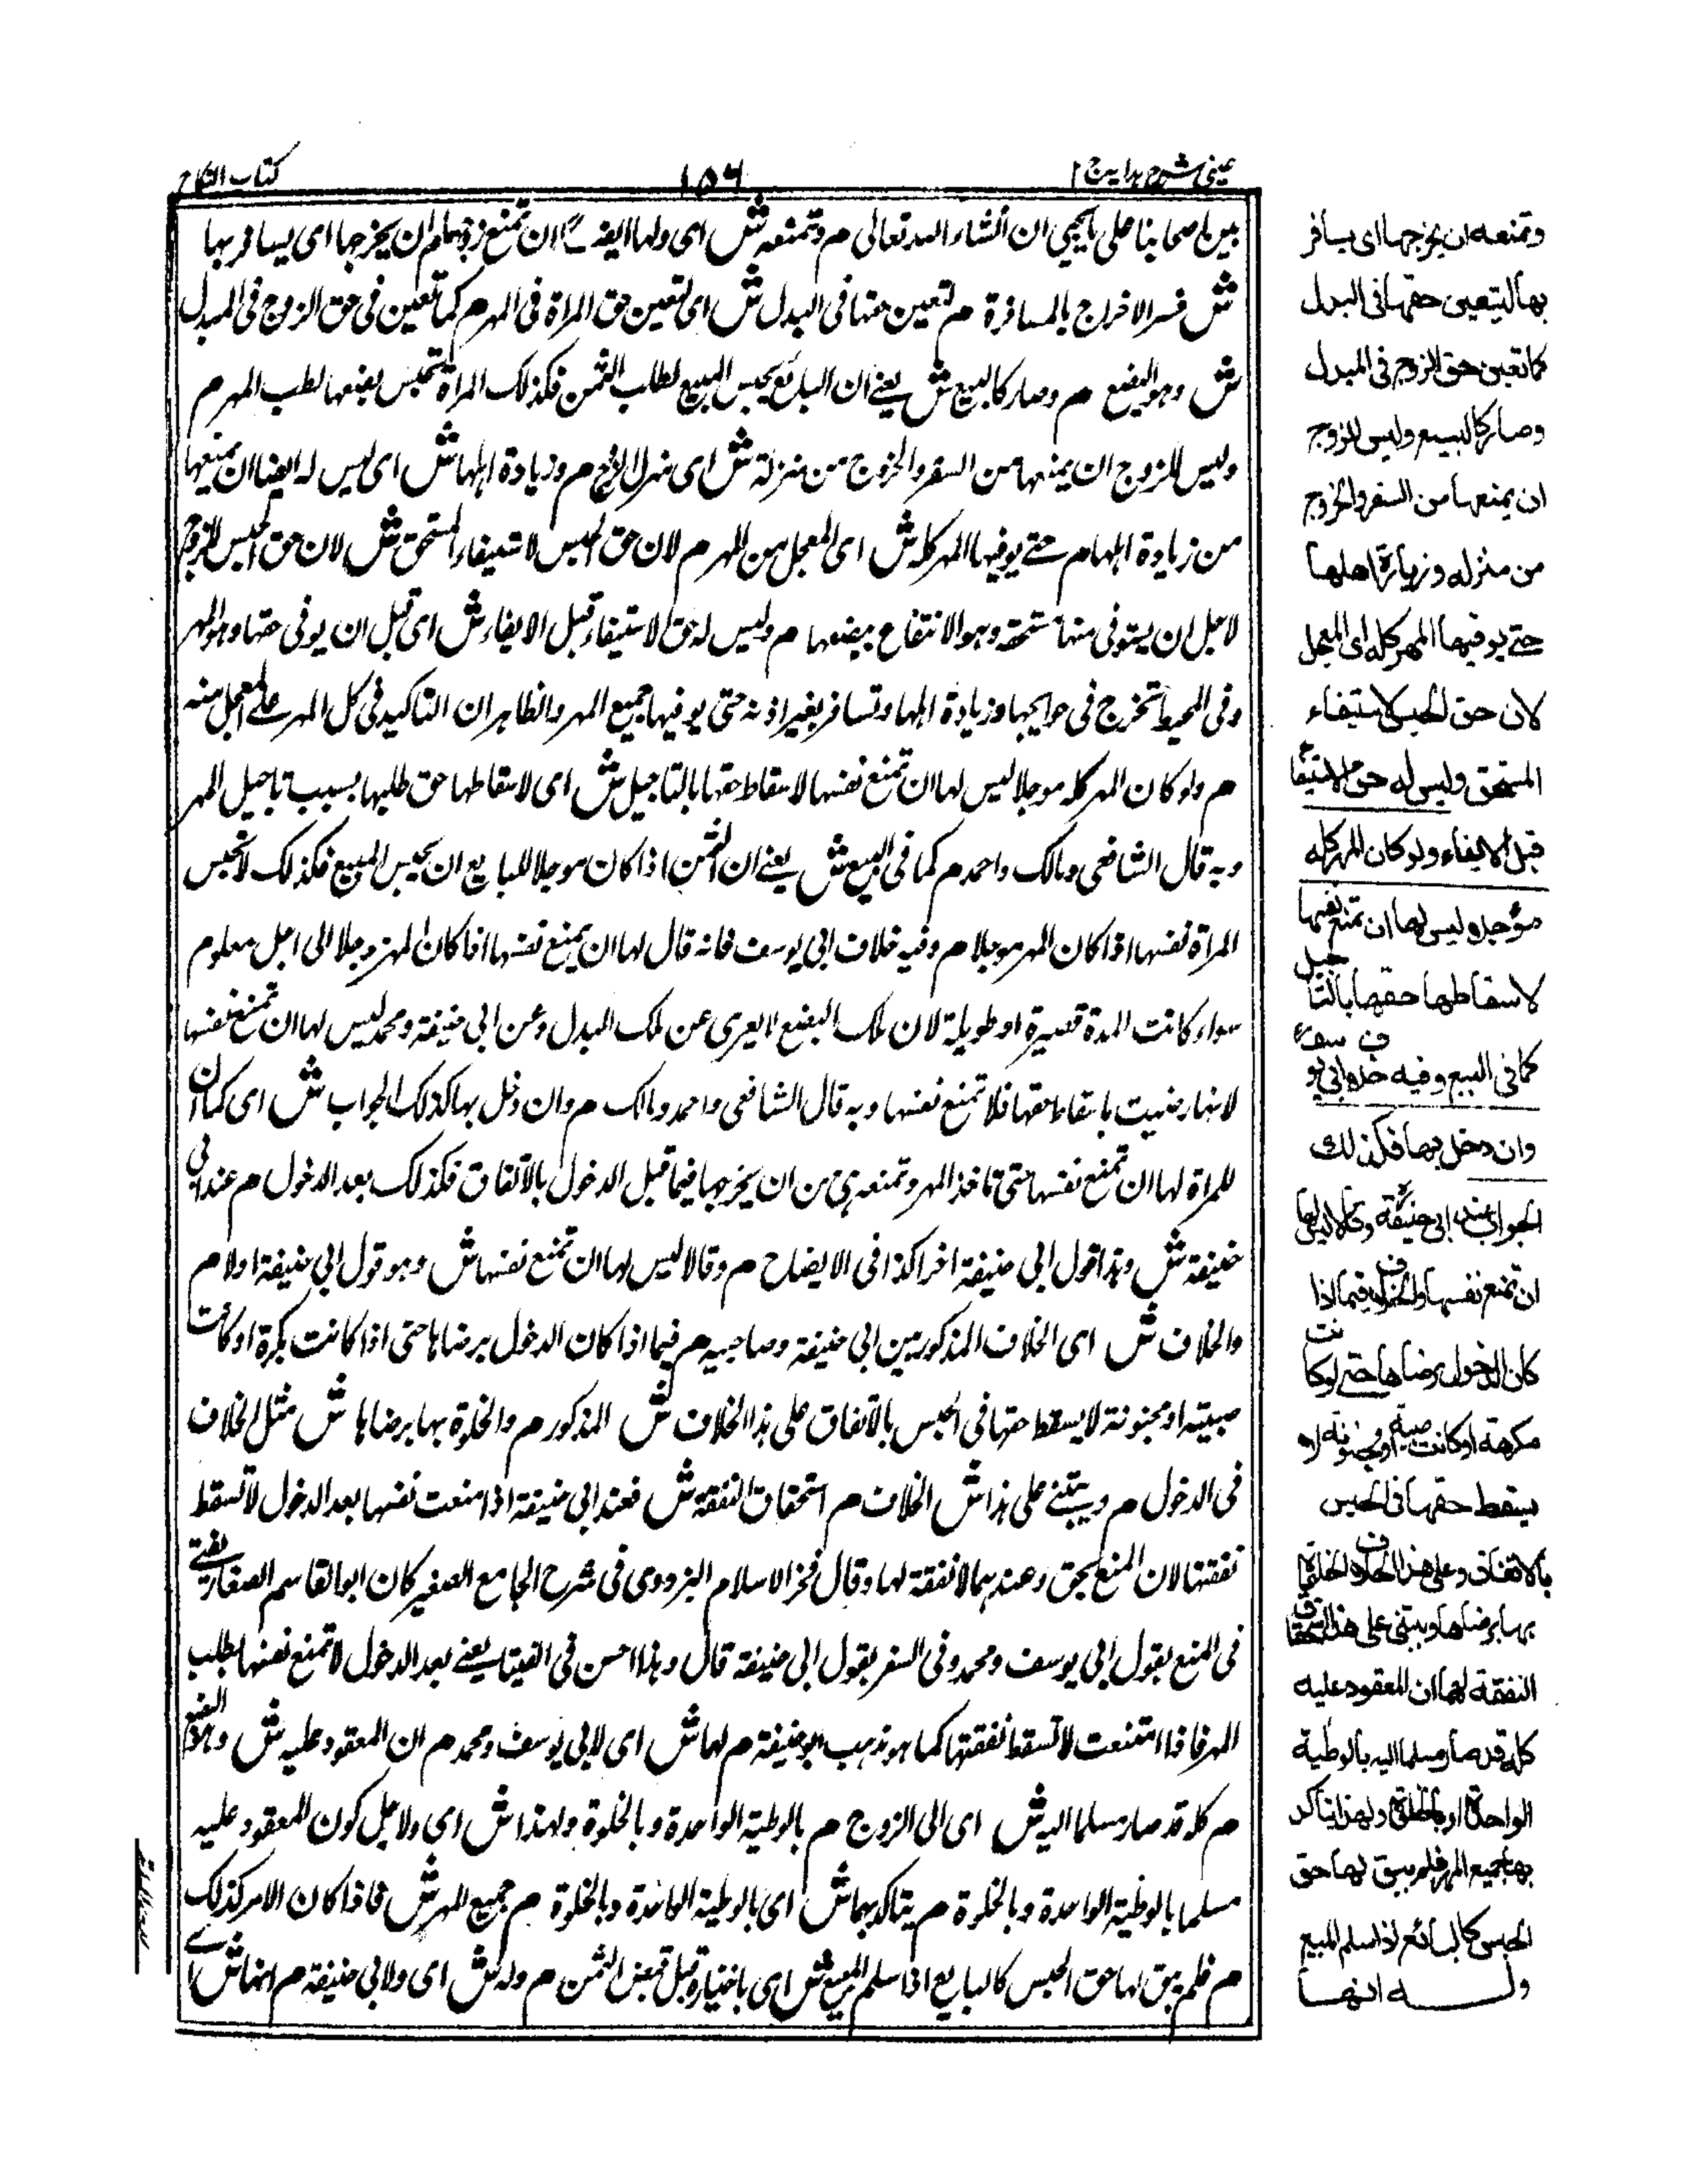 عینی شرح ہدایہ ج ۲
۱۵۶
کتاب النکاح
بین اصحابنا علی ما یجیٔ ان انشاء اللہ تعالی م وتمنعہ ش ای ولہا ایضا ان تمنع زوجہا م ان یخرجہا ای یسافر بہا
ش فسر الاخراج بالمسافرة م لتعین حقہا فی البدل ش ای لتعین حق المراة فی المہر م کما تعین فی حق الزوج فی المبدل
ش وہو البضع م وصار کالبیع ش یعنے ان البائع یحبس المبیع لطلب الثمن فکذلک المراة تحبس بضعہا لطلب المہر م
ولیس للزوج ان یمنعہا من السفر والخروج من منزلہ ش ای منزل الزوج م وزیادة اہلہا ش ای لیس لہ ایضا ان یمنعہا
من زیادة اہلہا م حتے یوفیہا المہر کلہ ش ای المعجل من المہر م لان حق الحبس لاستیفاء المستحق ش لان حق الحبس للزوج
لاجل ان یستوفی منہا مستحقہ وہو الانتفاع ببضعہا م ولیس لہ حق الاستیفاء قبل الایفاء ش ای قبل ان یوفی حقہا وہو المہر
وفی المحیط تخرج فی حوایجہا وزیادة اہلہا وتسافر بغیر اذنہ حتی یوفیہا جمیع المہر والظاہر ان التاکید فی کل المہر علے المعجل منہ
م ولو کان المہر کلہ موجلا لیس لہا ان تمنع نفسہا لاسقاط حقہا بالتاجیل ش ای لاسقاطہا حق طلبہا بسبب تاجیل المہر
وبہ قال الشافعی ومالک واحمد م کما فی البیع ش یعنے ان الثمن اذا کان موجلا للبایع ان یحبس المبیع فکذلک لا تحبس
المراة نفسہا اذا کان المہر موجلا م وفیہ خلاف ابی یوسف فانہ قال لہا ان یمنع نفسہا اذا کان المہر موجلا الی اجل معلوم
سواء کانت المدة قصیرة او طویلة لان ملک البضع لا یعری عن ملک البدل وعن ابی حنیفة ومحمد لیس لہا ان تمنع نفسہا
لانہا رضیت باسقاط حقہا فلا تمنع نفسہا وبہ قال الشافعی واحمد ومالک م وان دخل بہا کذلک الجواب ش ای کما ان
للمراة لہا ان تمنع نفسہا حتی تاخذ المہر وتمنعہ ہی من ان یخرجہا فیما قبل الدخول بالاتفاق فکذلک بعد الدخول م عند ابی
حنیفة ش وہذا قول ابی حنیفة اخرا کذا فی الایضاح م وقالا لیس لہا ان تمنع نفسہا ش وہو قول ابی حنیفة اولا م
والخلاف ش ای الخلاف المذکور بین ابی حنیفة وصاحبیہ م فیما اذا کان الدخول برضاہا حتی اذا کانت مکرة او کانت
صبیتہ او مجنونة لا یسقط حقہا فی الحبس بالاتفاق علی ہذا الخلاف ش المذکور م والخلوة بہا برضاہا ش مثل الخلاف
فی الدخول م ویبتنے علی ہذا ش الخلاف م استحقاق النفقة ش فعند ابی حنیفة اذا منعت نفسہا بعد الدخول لا تسقط
نفقتہا لان المنع بحق وعندہما لا نفقة لہا وقال فخر الاسلام البزدوی فی شرح الجامع الصغیر کان ابو القاسم الصفار یفتے
فی المنع بقول ابی یوسف ومحمد وفی السفر بقول ابی حنیفة قال وہذا احسن فی الفیتا یعنے بعد الدخول لا تمنع نفسہا لطلب
المہر فاذا امتنعت لا تسقط نفقتہا کما ہو مذہب ابو حنیفة م لہما ش ای لابی یوسف ومحمد م ان المعقود علیہ ش وہو البضع
م کلہ قد صار مسلما الیہ ش ای الی الزوج م بالوطیة الواحدة وبالخلوة ولہذا ش ای ولاجل کون المعقود علیہ
مسلما بالوطیة الواحدة وبالخلوة م یتاکد بہما ش ای بالوطیة الواحدة وبالخلوة م جمیع المہر ش فاذا کان الامر کذلک
م فلم یبق لہا حق الحبس کالبایع اذا سلم المبیع ش ای باختیارہ قبل قبض الثمن م ولہ ش ای ولابی حنیفة م انہا ش اے
وتمنعه ان يخرجها اى يسافر
بها ليتعين حقها فى البدل
كما تعين حق الزوج فى المبدل
وصار كالبيع وليس للزوج
ان يمنعها من السفر والخروج
من منزله وزيارة اهلها
حتے يوفيها المهر كله اى المعجل
لان حق الحبس لاستيفاء
المستحق وليس له حق الاستيفاء
قبل الايفاء ولو كان المهر كله
مؤجلا وليس لها ان تمنع نفسها
لاسقاطها حقها بالتاجيل
كما فى البيع وفيه خلاف ابى يوسف
وان دخل بها فكذلك
الجواب عند ابى حنيفة وقالا ليس لها
ان تمنع نفسها والخلاف فيما اذا
كان الدخول برضاها حتے لو كانت
مكرهة او كانت صبية او مجنونة لا
يسقط حقها فى الحبس
بالاتفاق وعلى هذا الخلاف الخلوة
بها برضاها ويبتنى على هذا استحقاق
النفقة لهما ان المعقود عليه
كله قد صار مسلما اليه بالوطية
الواحدة او بالخلوة ولهذا يتاكد
بها جميع المهر فلم يبق لها حق
الحبس كالبائع اذا سلم المبيع
وله انها